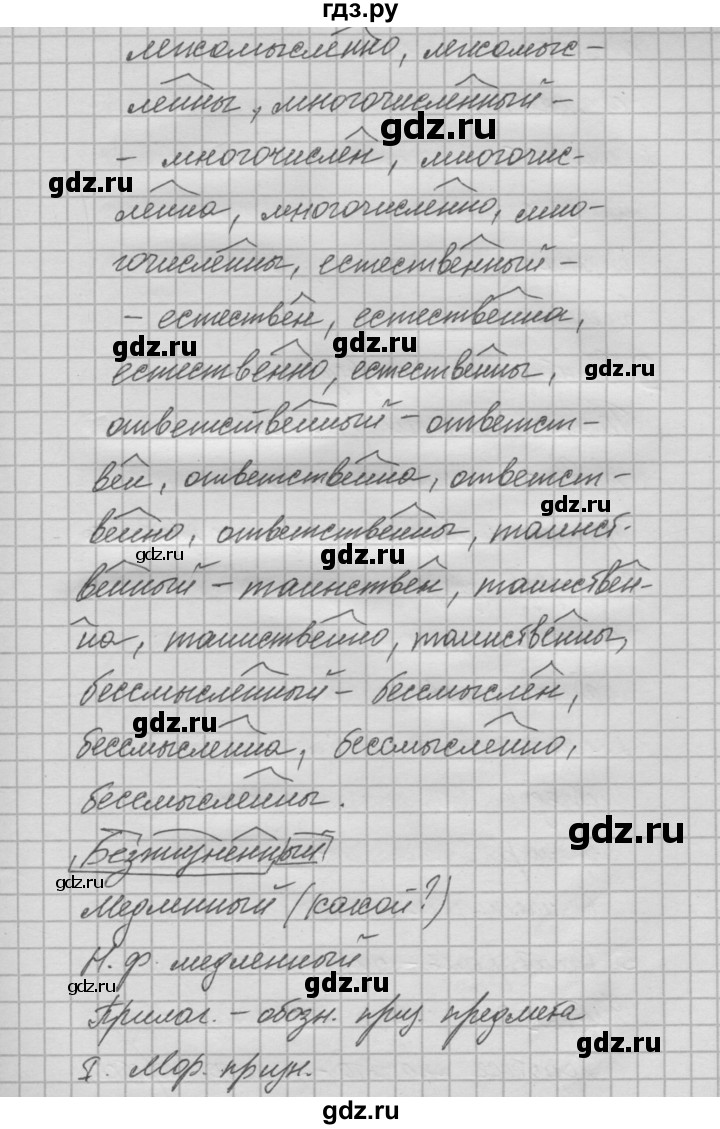 гдз.ру
легкомысленно, легкомыс-
ленны, многочисленный -
gdz.ru
- многочислен, многочис-
gdz.ru
ленна, многочисленно, мно-
гочисленны, естественный -
- естествен, естественна,
gdz.ru
gdz.ru
естественно, естественны,
gdz.ru
ответственный - ответст-
вен, ответственна, ответст-
gdz.ru
венно, ответственны, таинст-
gdz.ru
gdz.ru
венный - таинствен, таинствен-
на, таинственно, таинственны,
бессмысленный - бессмыслен,
gdz.ru
бессмысленна, бессмысленно,
бессмысленны.
gdz.ru
Безжизненный
gdz.ru
Медленный (какой?)
Н. ф. медленный
gdz.ru
gdz.ru
Прилаг. - обозн. призн. предмета
gdz.ru
I. Мор. призн.
gdz.ru